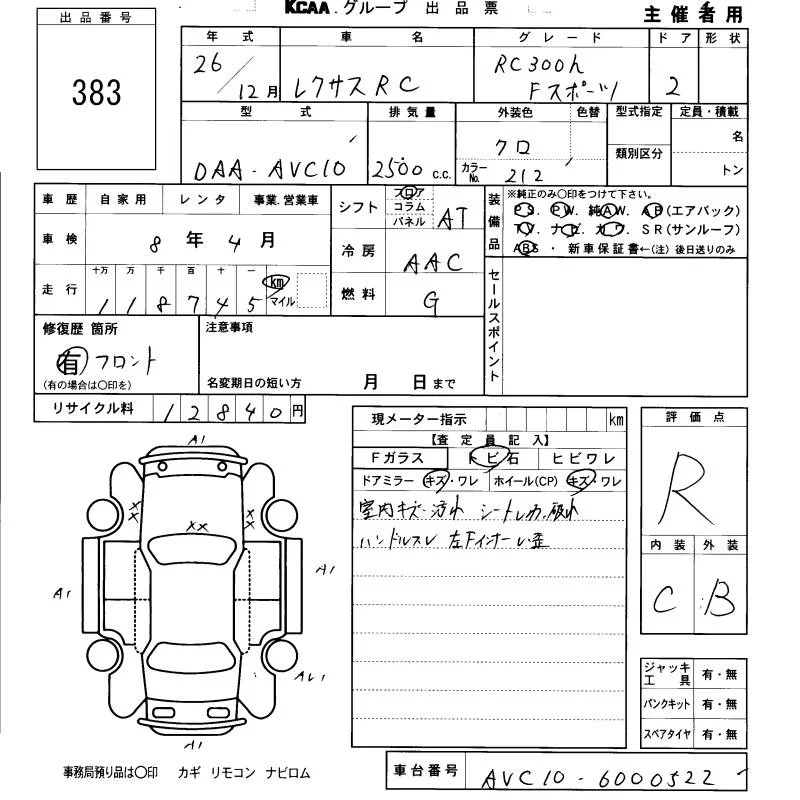 KCAA.グループ 出品票
主催者用
出品番号
383
年式 車名 グレード ドア 形状
26/12月 レクサスRC RC300h Fスポーツ 2
型式 排気量 外装色 色替 型式指定 定員・積載
DAA-AVC10 2500 c.c. クロ カラーNo. 212 類別区分 名 トン
車歴 自家用 レンタ 事業.営業車
シフト フロア コラム パネル AT
装備品
※純正のみ〇印をつけて下さい。
PS. PW. 純AW. AB(エアバック)
TV. ナビ. カワ. SR(サンルーフ)
ABS ・ 新車保証書←(注) 後日送りのみ
車検 8年4月
冷房 AAC
走行 十万 万 千 百 十 一
118745 km マイル
燃料 G
セールスポイント
修復歴 箇所
有 フロント
(有の場合は〇印を)
注意事項
名変期日の短い方 月 日まで
リサイクル料 12840円
現メーター指示 km
【査定員記入】
Fガラス トビ石 ヒビワレ
ドアミラー キズ・ワレ ホイール(CP) キズ・ワレ
室内キズ・汚れ シート 破れ
ハンドルスレ 左Fインホールし歪
評価点
R
内装 外装
C B
A1
XX XX XX
A1 A1
AU1
A1
ジャッキ工具 有・無
パンクキット 有・無
スペアタイヤ 有・無
事務局預り品は〇印 カギ リモコン ナビロム
車台番号 AVC10-6000522